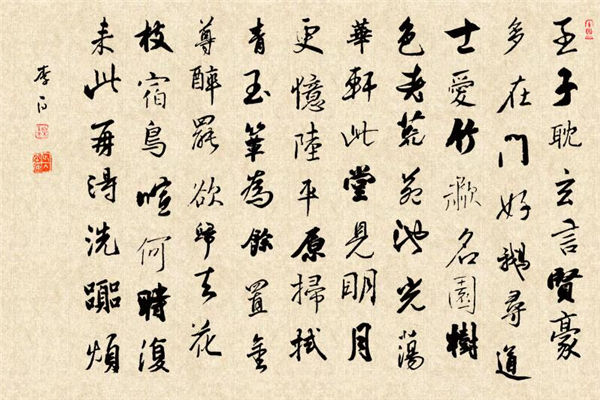 王子耽玄言賢豪
多在門好鵝尋道
士愛竹歗名園樹
色老荒苑池光蕩
華軒此堂見明月
更憶陸平原掃拭
青玉簟為餘置金
尊醉罷欲歸去花
枝宿鳥喧何時復
来此再得洗囂煩
李白